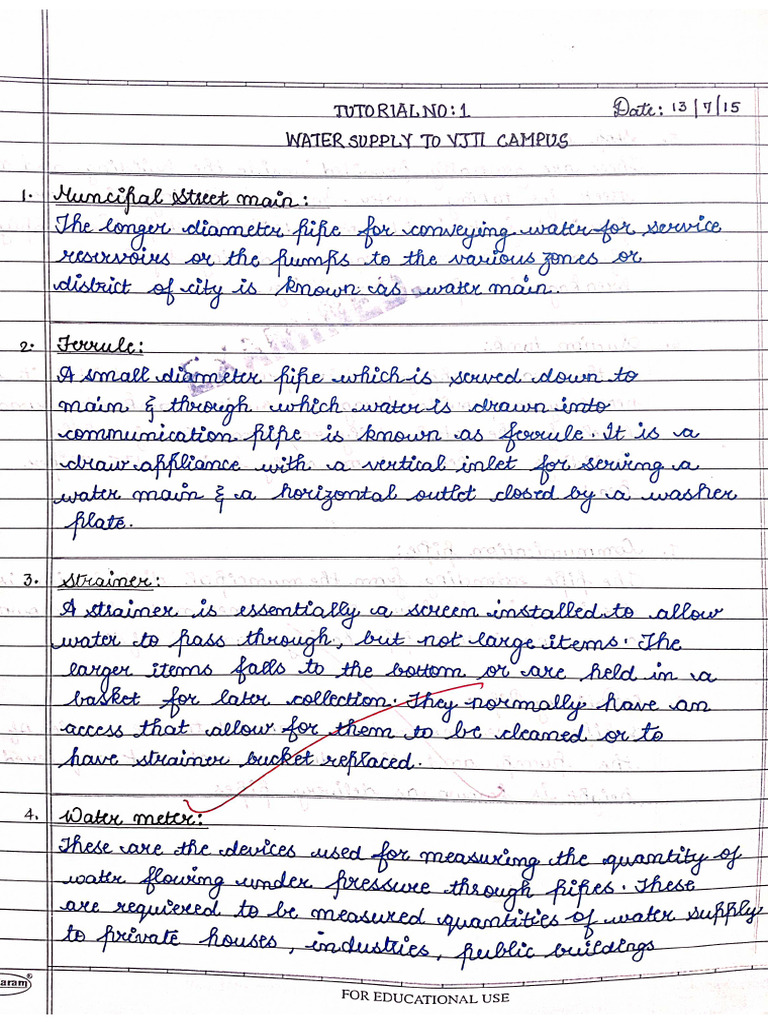 TUTORIAL NO: 1
Date: 13/7/15
WATER SUPPLY TO VJTI CAMPUS
1. Muncipal Street main:
The longer diameter pipe for conveying water for service
reservoirs or the pumps to the various zones or
district of city is known as water main.
2. Ferrule:
A small diameter pipe which is served down to
main & through which water is drawn into
communication pipe is known as ferrule. It is a
draw appliance with a vertical inlet for serving a
water main & a horizontal outlet closed by a washer
plate.
3. Strainer:
A strainer is essentially a screen installed to allow
water to pass through, but not large items. The
larger items falls to the bottom or are held in a
basket for later collection. They normally have an
access that allow for them to be cleaned or to
have strainer bucket replaced.
4. Water meter:
These are the devices used for measuring the quantity of
water flowing under pressure through pipes. These
are requiered to be measured quantities of water supply
to private houses, industries, public buildings
aram®
FOR EDUCATIONAL USE